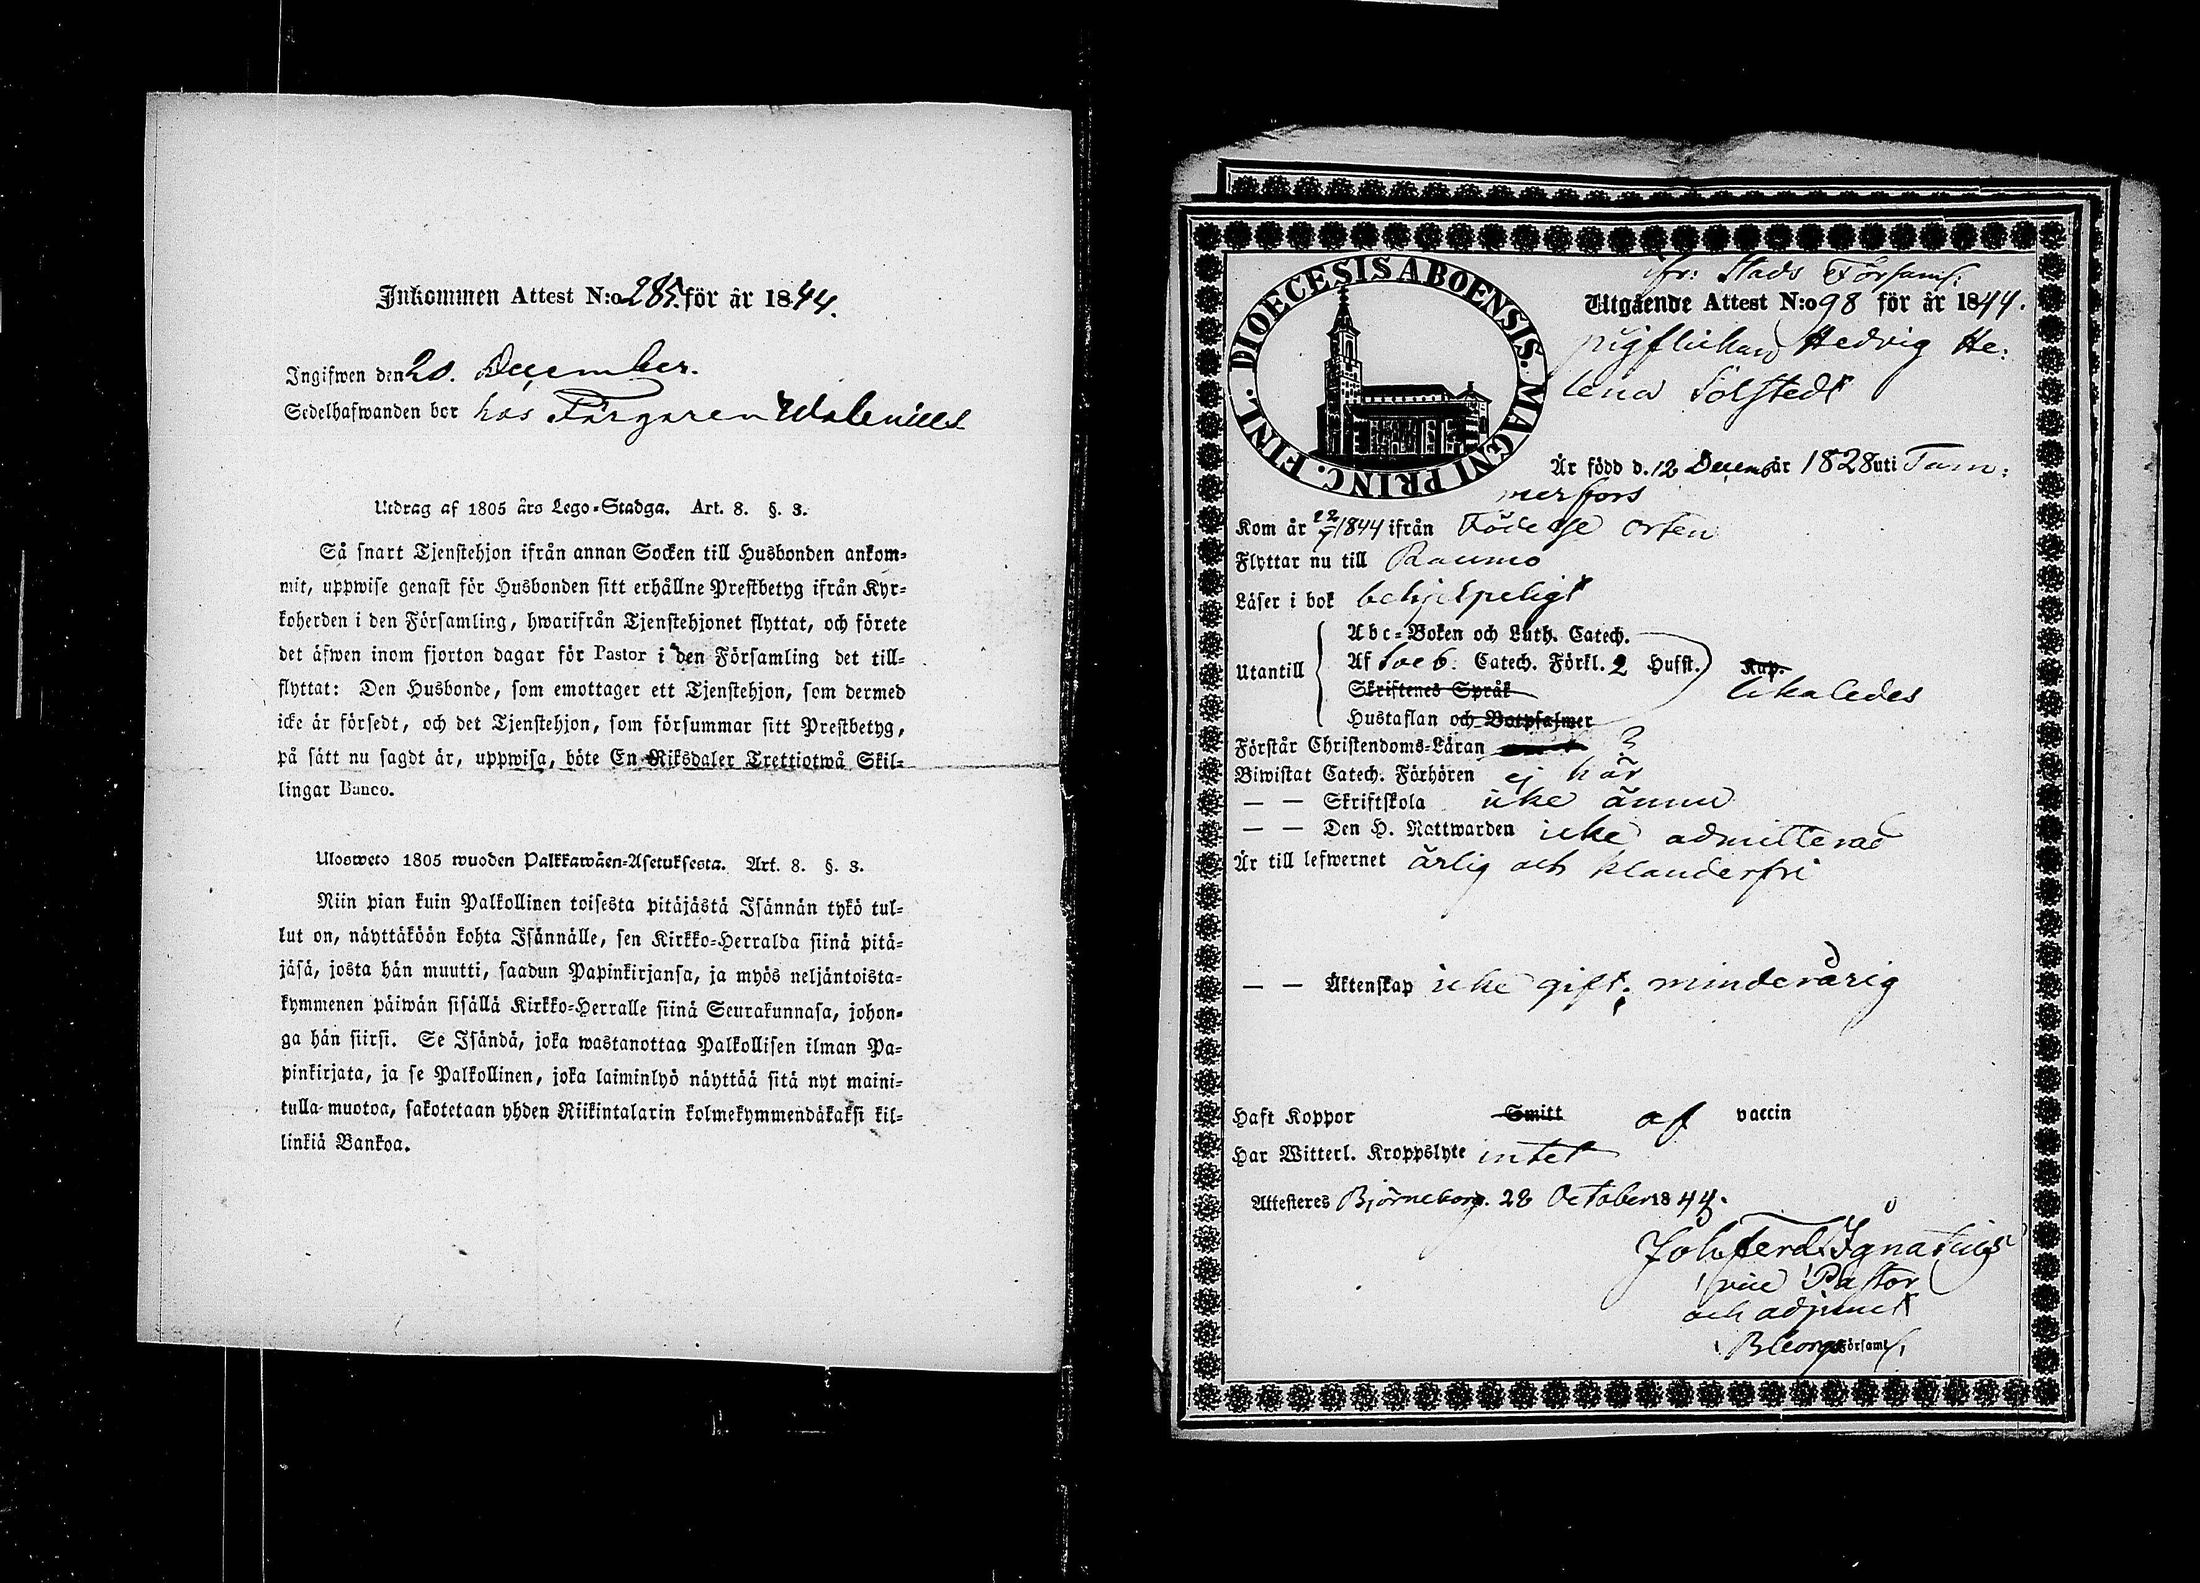 Inkommen Attest N:o 285. för år 1844.
Ingifwen den 20. December.
Sedelhafwanden bor hos Färgaren
Utdrag af 1805 års Lego-Stadga. Art. 8. §. 3.
Så snart Tjenstehjon ifrån annan Socken till Husbonden ankom-
mit, uppwise genast för Husbonden sitt erhållne Prestbetyg ifrån Kyr-
koherden i den Församling, hwarifrån Tjenstehjonet flyttat, och förete
det äfwen inom fjorton dagar för Pastor i den Församling det till-
flyttat: Den Husbonde, som emottager ett Tjenstehjon, som dermed
icke är försedt, och det Tjenstehjon, som försummar sitt Prestbetyg,
på sätt nu sagdt är, uppwisa, böte En Riksdaler Trettiotwå Skil-
lingar Banco.
Ulosweto 1805 wuoden Palkkawäen-Asetuksesta. Art. 8. §. 3.
Niin pian kuin Palkollinen toisesta pitäjästä Isännän tykö tul-
lut on, näyttäköön kohta Isännälle, sen Kirkko-Herralda siinä pitä-
jäsä, josta hän muutti, saadun Papinkirjansa, ja myös neljäntoista-
kymmenen päiwän sisällä Kirkko-Herralle siinä Seurakunnasa, johon-
ga hän siirsi. Se Isändä, joka wastanottaa Palkollisen ilman Pa-
pinkirjata, ja se Palkollinen, joka laiminlyö näyttää sitä nyt maini-
tulla muotoa, sakotetaan yhden Riikintalarin kolmekymmendäkaksi kil-
linkiä Bankoa.
DIOECESIS ABOENSIS. MAGNI PRINC. FINL.
fr: Stads Församl:
Utgående Attest N:o 98 för år 1844.
pigflickan Hedvig He:
lena Solstedt
Är född d. 12 Decemb år 1828 uti Tam:
merfors
Kom år 22/7 1844 ifrån Födelse orten
Flyttar nu till Raumo
Läser i bok behjelpeligt
Utantill
Abc-Boken och Luth. Catech.
Af Sveb. Catech. Förkl. 2 Husst. Kap.
Skriftenes Språk
likaledes
Hustaflan och Botpsalmer
Förstår Christendoms-Läran ?
Biwistat Catech. Förhören ej här
— — Skriftskola icke ännu
— — Den H. Nattwarden icke admitterad
Är till lefwernet ärlig och klanderfri
— — Äktenskap icke gift; minderårig
Haft Koppor Smitt af vaccin
Har Witterl. Kroppslyte intet
Attesteres Björneborg. 28 October 1844.
Joh Ferd. Ignatius
vice Pastor
och adjunct
i Bborgs Församl,